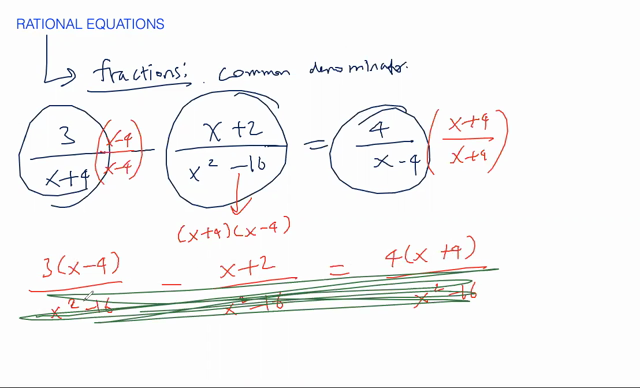 RATIONAL EQUATIONS
fractions: common denominator.
3/(x+4) ((x-4)/(x-4)) - (x+2)/(x² -16) = 4/(x-4) ((x+4)/(x+4))
(x+4)(x-4)
3(x-4)/(x²-16) - (x+2)/(x²-16) = 4(x+4)/(x²-16)